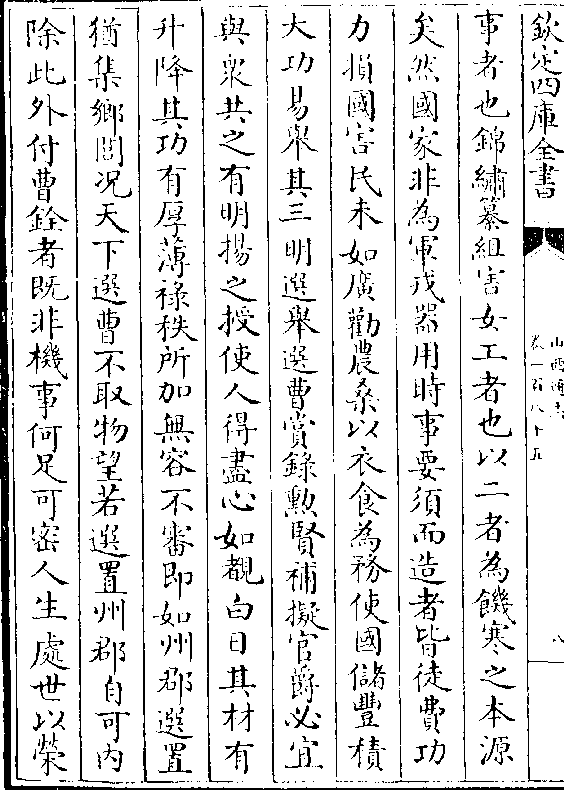 欽定四庫全書
山西通志
卷一百八十五
八
事者也錦繡纂組害女工者也以二者為饑寒之本源
矣然國家非為軍戎器用時事要須而造者皆徒費功
力損國害民未如廣勸農桑以衣食為務使國儲豐積
大功易舉其三明選舉選曹賞錄勲賢補擬官爵必宜
與衆共之有明揚之授使人得盡心如覩白日其材有
升降其功有厚薄祿秩所加無容不審即如州郡選置
猶集鄉閭况天下選曹不取物望若選置州郡自可内
除此外付曹銓者既非機事何足可密人生處世以榮